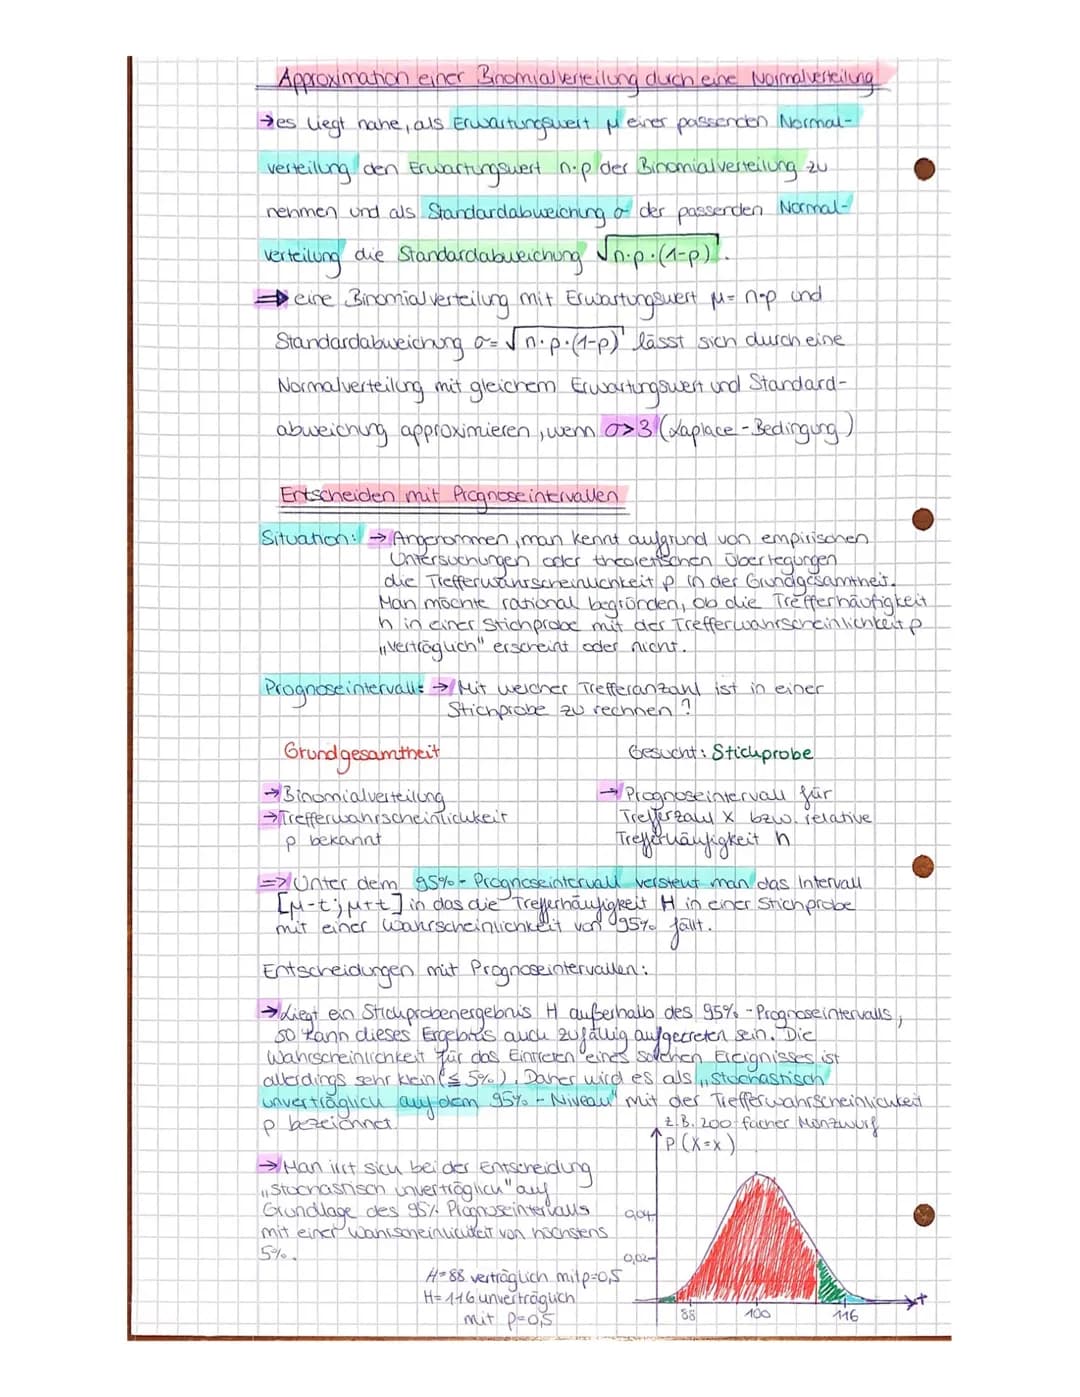 Approximation einer Binomialverteilung durch eine Normalverteilung
→ es liegt nahe, als Erwartungswert μ einer passenden Normal-
verteilung den Erwartungswert n·p der Binomialverteilung zu
nehmen und als Standardabweichung σ der passenden Normal-
verteilung die Standardabweichung √n·p·(1-p).
⇒ eine Binomialverteilung mit Erwartungswert μ= n·p und
Standardabweichung σ= √n·p·(1-p) lässt sich durch eine
Normalverteilung mit gleichem Erwartungswert und Standard-
abweichung approximieren, wenn σ>3 (Laplace-Bedingung)
Entscheiden mit Prognoseintervallen
Situation: → Angenommen, man kennt aufgrund von empirischen
Untersuchungen oder theoretischen Überlegungen
die Trefferwahrscheinlichkeit p in der Grundgesamtheit.
Man möchte rational begründen, ob die Trefferhäufigkeit
h in einer Stichprobe mit der Trefferwahrscheinlichkeit p
„verträglich" erscheint oder nicht.
Prognoseintervall: → Mit welcher Trefferanzahl ist in einer
Stichprobe zu rechnen?
Grundgesamtheit
Gesucht: Stichprobe
→ Binomialverteilung
→ Trefferwahrscheinlichkeit
p bekannt
→ Prognoseintervall für
Trefferzahl X bzw. relative
Trefferhäufigkeit h
⇒ Unter dem 95%-Prognoseintervall versteht man das Intervall
[μ-t; μ+t] in das die Trefferhäufigkeit H in einer Stichprobe
mit einer Wahrscheinlichkeit von 95% fällt.
Entscheidungen mit Prognoseintervallen:
→ Liegt ein Stichprobenergebnis H außerhalb des 95%-Prognoseintervalls,
so kann dieses Ergebnis auch zufällig aufgetreten sein. Die
Wahrscheinlichkeit für das Eintreten eines solchen Ereignisses ist
allerdings sehr klein (≤ 5%). Daher wird es als „stochastisch
unverträglich auf dem 95%-Niveau" mit der Trefferwahrscheinlichkeit
p bezeichnet.
→ Man irrt sich bei der Entscheidung
„stochastisch unverträglich" auf
Grundlage des 95% Prognoseintervalls
mit einer Wahrscheinlichkeit von höchstens
5%.
H=88 verträglich mit p=0,5
H=116 unverträglich
mit p=0,5
z.B. 200-facher Münzwurf
P(X=x)
0,04
0,02
88
100
116